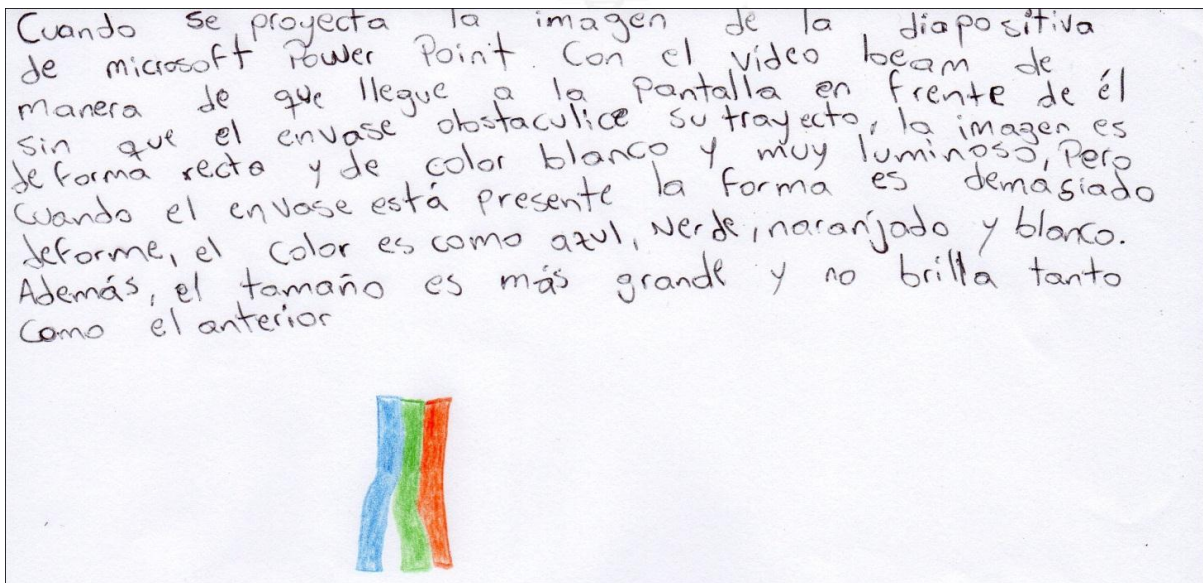 Cuando se proyecta la imagen de la diapositiva
de microsoft Power Point. Con el vídeo beam de
manera de que llegue a la Pantalla en frente de él
sin que el envase obstaculice su trayecto, la imagen es
de forma recta y de color blanco y muy luminoso, Pero
cuando el envase está presente la forma es demásiado
deforme, el color es como azul, verde, naranjado y blanco.
Además, el tamaño es más grande y no brilla tanto
como el anterior